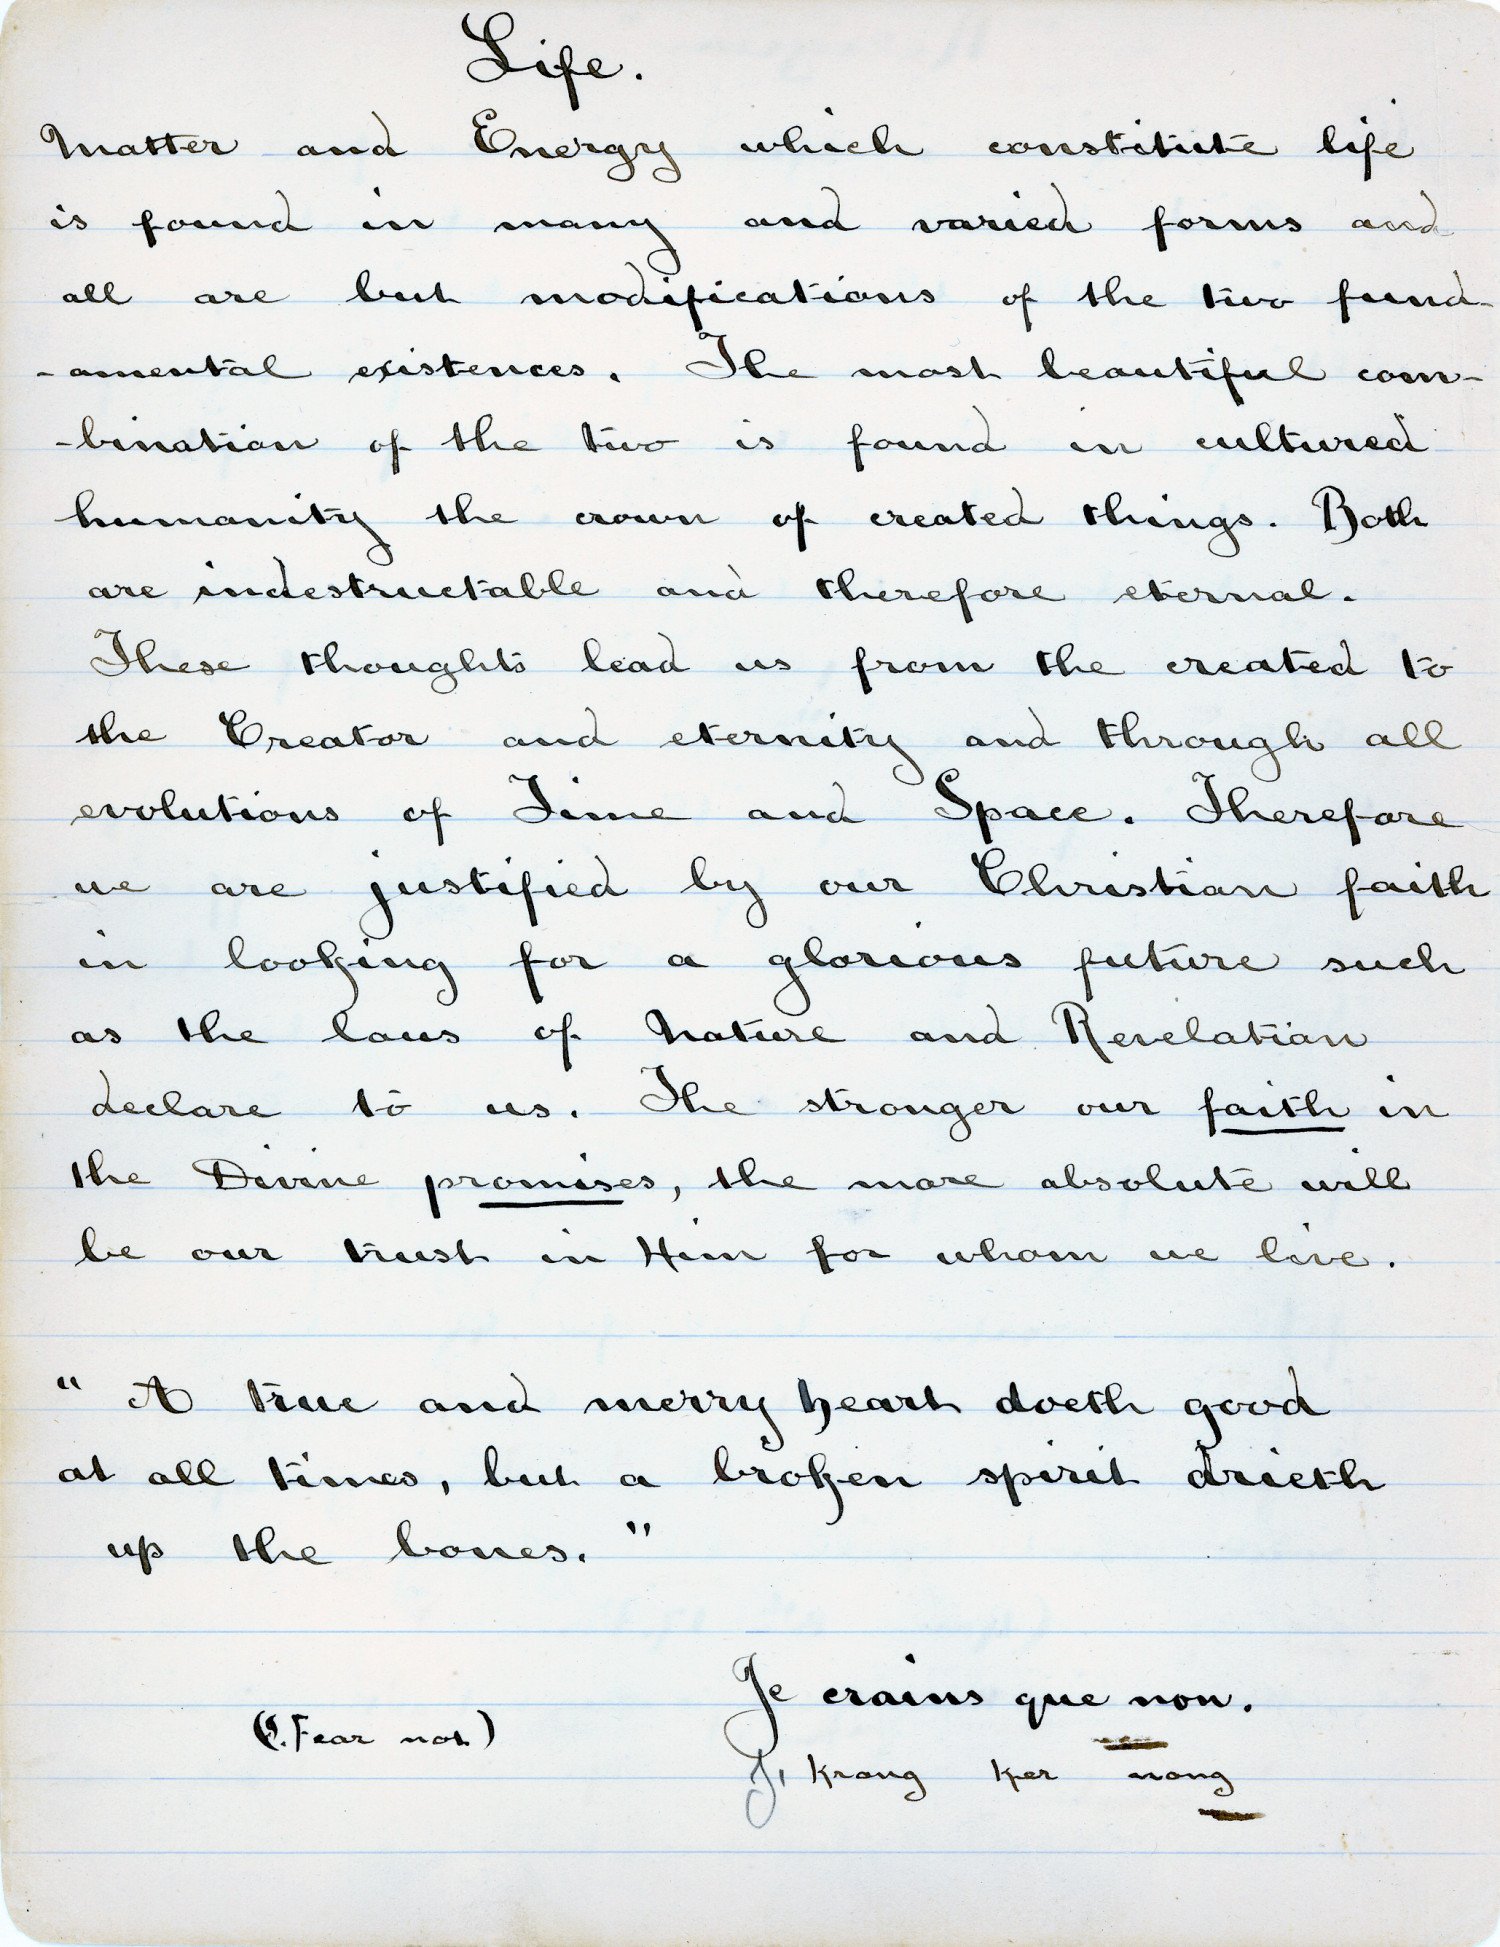 Life.
Matter and Energy which constitute life
is found in many and varied forms and
all are but modifications of the two fund-
-amental existences. The most beautiful com-
-bination of the two is found in cultured
humanity the crown of created things. Both
are indestructable and therefore eternal.
These thoughts lead us from the created to
the Creator and eternity and through all
evolutions of Time and Space. Therefore
we are justified by our Christian faith
in looking for a glorious future such
as the laws of Nature and Revelation
declare to us. The stronger our faith in
the Divine promises, the more absolute will
be our trust in Him for whom we live.
" A true and merry heart doeth good
at all times, but a broken spirit drieth
up the bones. "
Je crains que non.
(I. Fear not)
J, Krang Ker nong